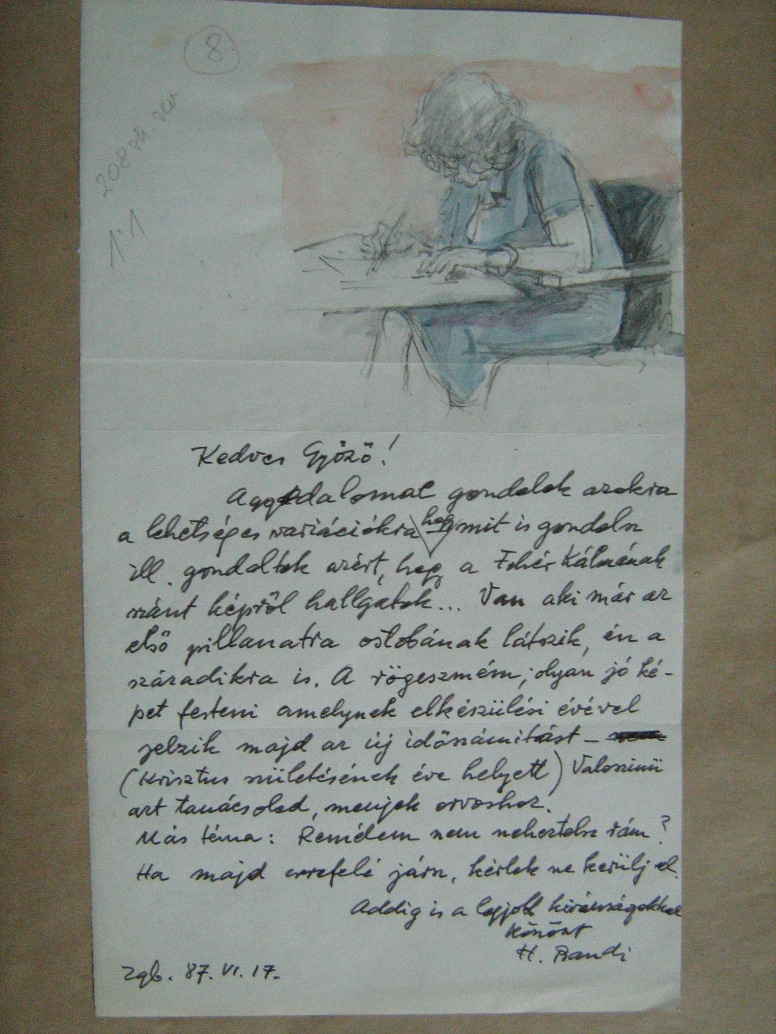 8
Kedves Győző!
Aggodalomal gondolok azokra
a lehetséges variációkra hogy mit is gondolsz
ill. gondoltok azért, hogy a Fehér Kálmánnak
szánt képről hallgatok... Van aki már az
első pillanatra ostobának látszik, én a
századikra is. A rögeszmém, olyan jó ké-
pet festeni amelynek elkészülési évével
jelzik majd az új időszámitást –
(Krisztus születésének éve helyett) Valoszinü
azt tanácsolod, menjek orvoshoz.
Más téma: Remélem nem neheztelsz rám?
Ha majd errefelé jársz, kérlek ne kerülj el.
Addig is a legjobb kivánságokkal
köszönt
H. Bandi
Zgb. 87. VI. 17.